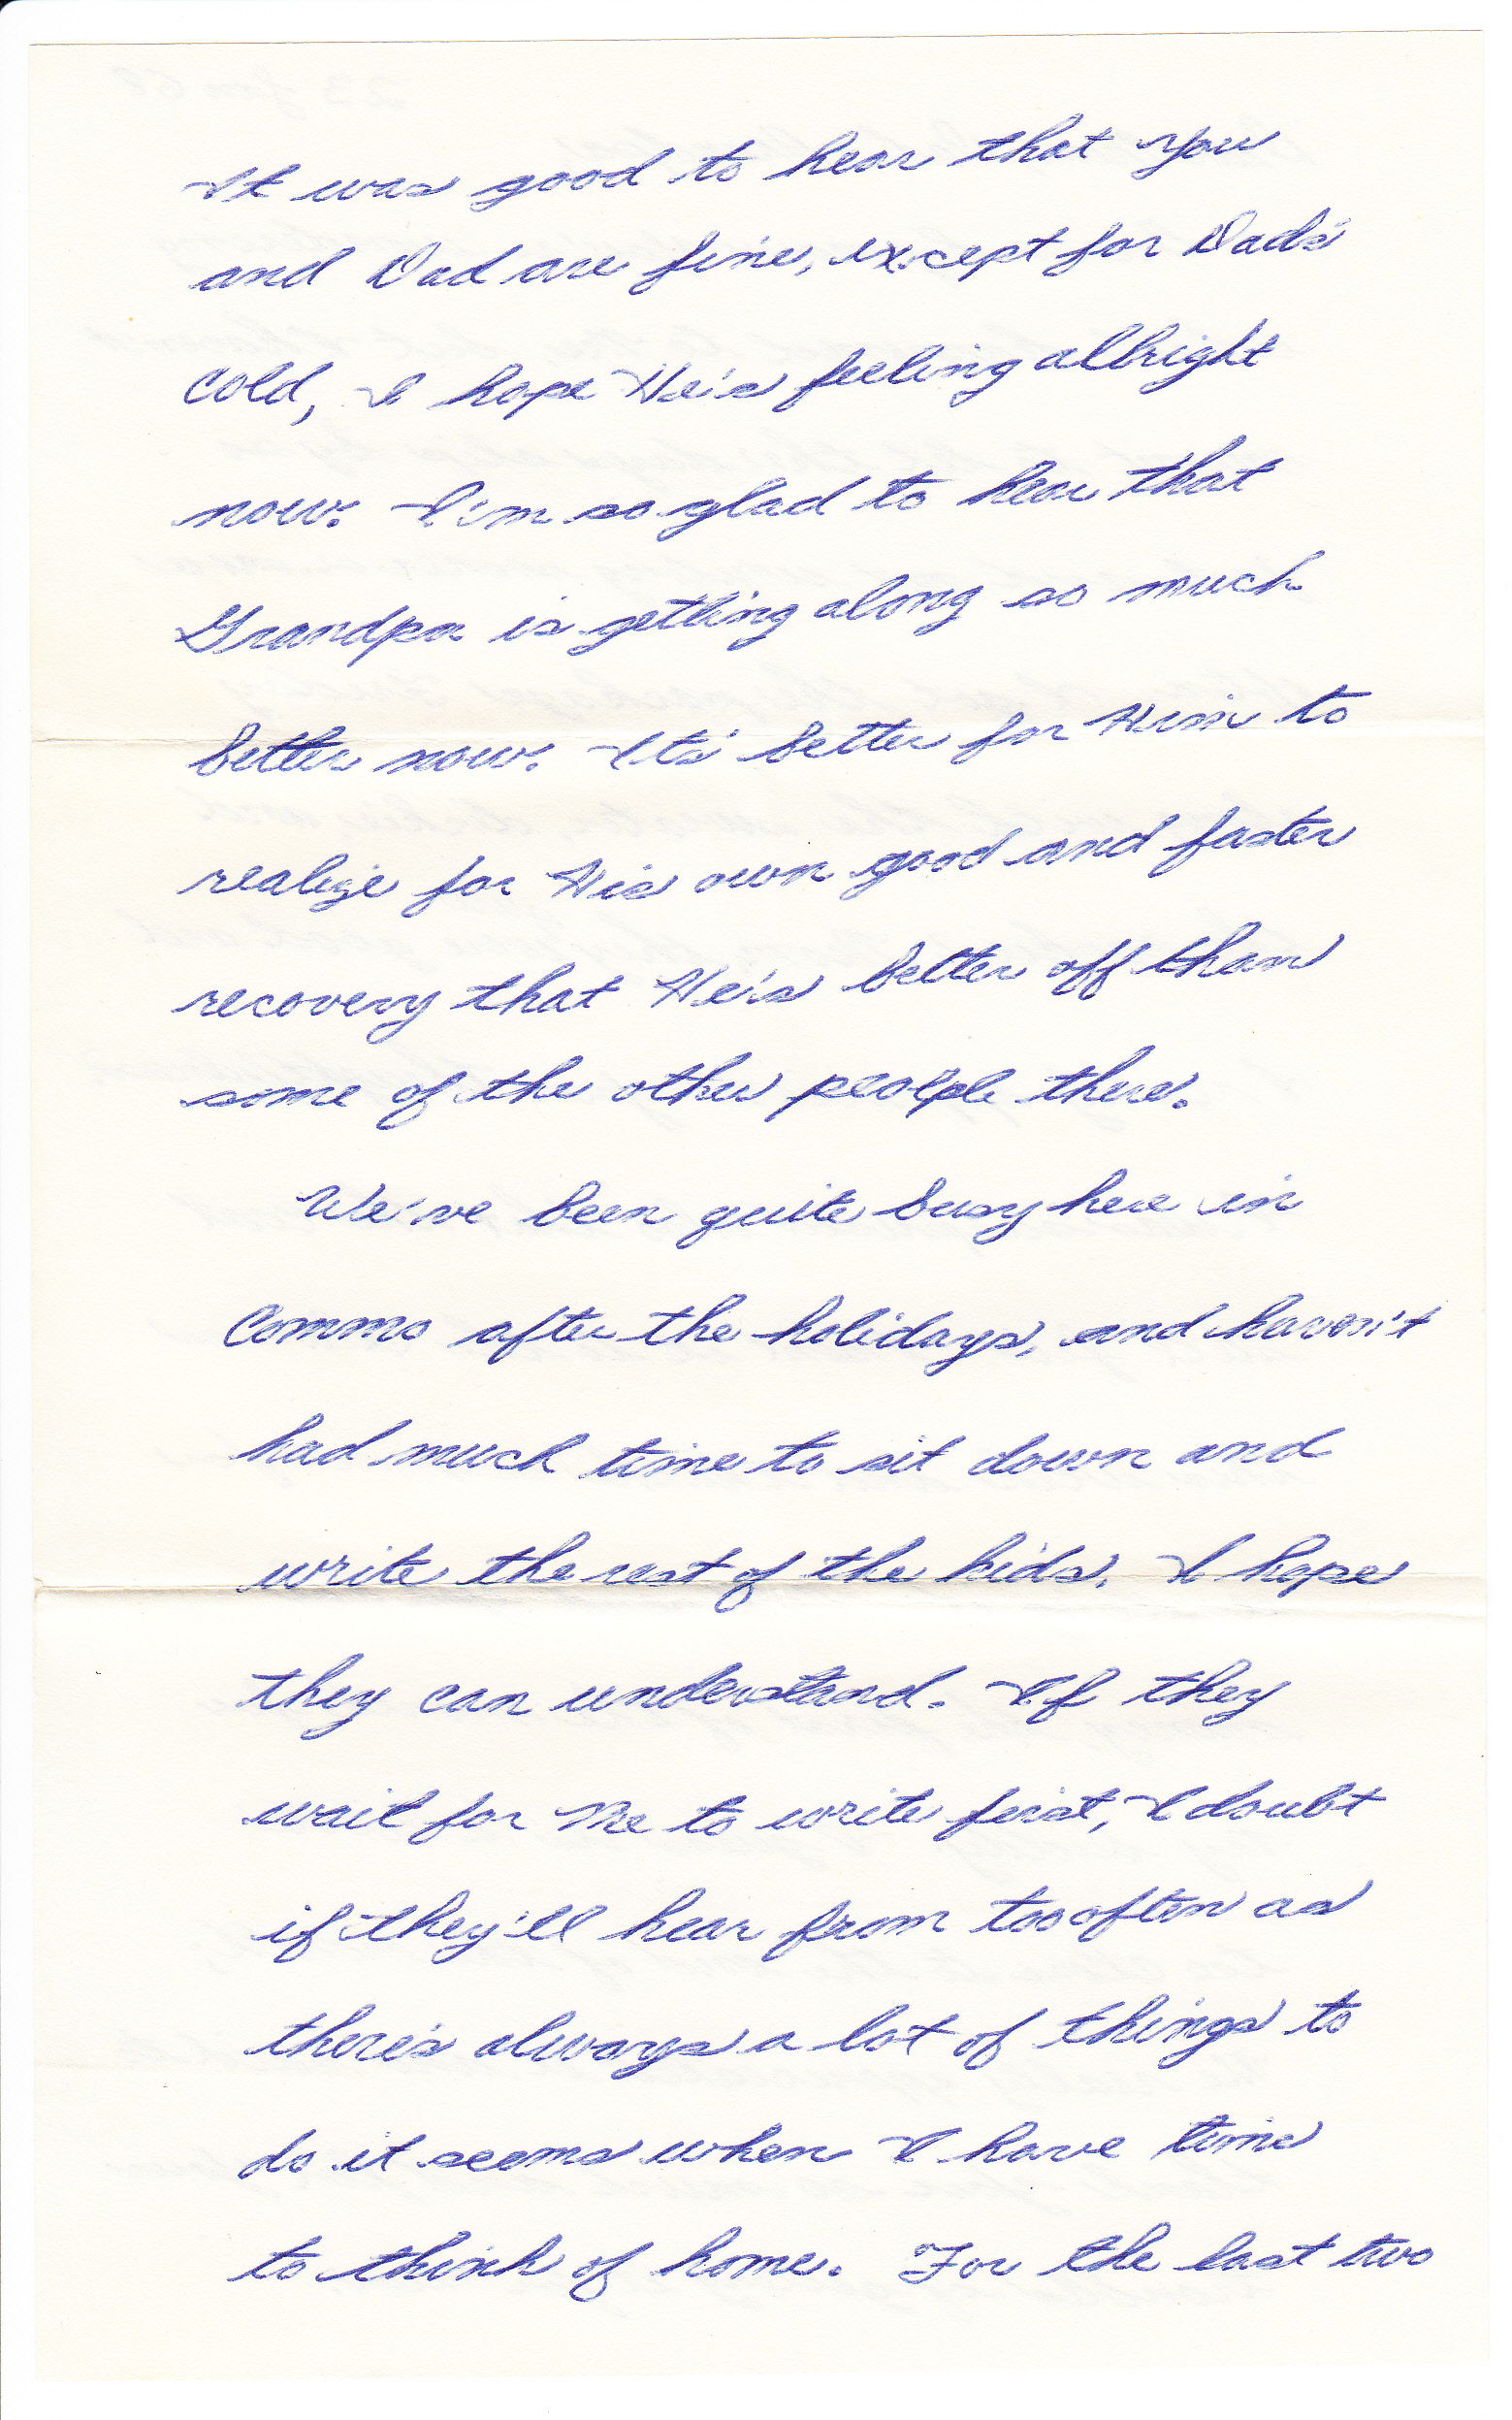 It was good to hear that you
and Dad are fine, except for Dad's
cold, I hope He's feeling allright
now. I'm so glad to hear that
Grandpa is getting along so much
better now. Its' better for Him to
realize for His own good and faster
recovery that He's better off than
some of the other peolple there.
We've been quite busy here in
Commo after the holidays, and haven't
had much time to sit down and
write the rest of the kids. I hope
they can understand. If they
wait for Me to write first, I doubt
if they'll hear from too often as
there's always a lot of things to
do it seems when I have time
to think of home. For the last two